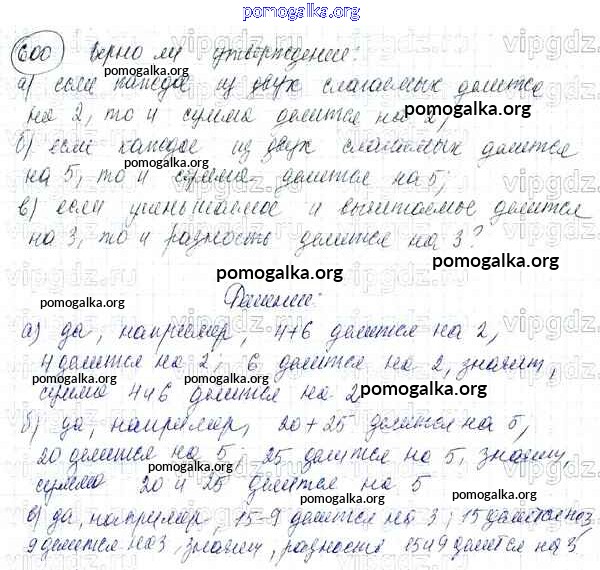 pomogalka.org
600 Верно ли утверждение:
а) если каждое из двух слагаемых делится
на 2, то и сумма делится на 2;
б) если каждое из двух слагаемых делится
на 5, то и сумма делится на 5;
в) если уменьшаемое и вычитаемое делится
на 3, то и разность делится на 3?
pomogalka.org
Решение:
а) да, например, 4+6 делится на 2,
4 делится на 2, 6 делится на 2, значит,
сумма 4и6 делится на 2
б) да, например, 20+25 делится на 5,
20 делится на 5, 25 делится на 5, значит,
сумма 20 и 25 делится на 5
в) да, например, 15-9 делится на 3, 15 делится на 3,
9 делится на 3, значит, разность 15и9 делится на 3